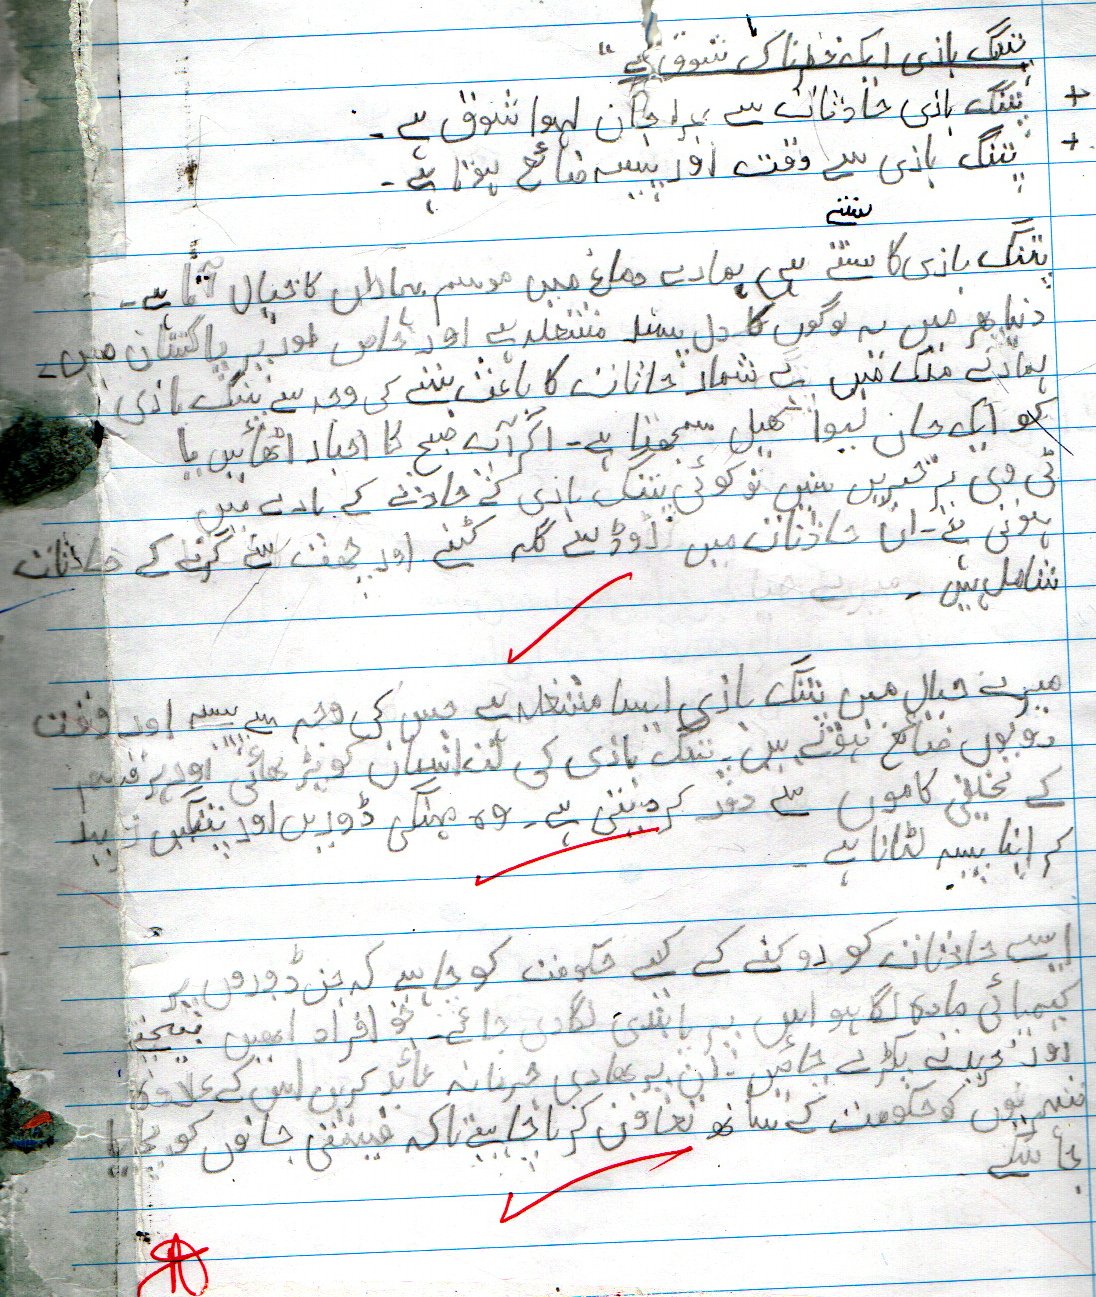 پتنگ بازی ایک خطرناک شوق ہے"
+ پتنگ بازی حادثات سے بھرا جان لیوا شوق ہے ۔
+ پتنگ بازی سے وقت اور پیسہ ضائع ہوتا ہے ۔
سنتے
پتنگ بازی کا سنتے ہی ہمارے دماغ میں موسم بہاراں کا خیال آتا ہے ۔
دنیا بھر میں یہ لوگوں کا دل پسند مشغلہ ہے اور خاص طور پر پاکستان میں ۔
ہمارے ملک میں بے شمار حادثات کا باعث بننے کی وجہ سے پتنگ بازی
کو ایک جان لیوا کھیل سمجھتا ہے ۔ اگر آپ صبح کا اخبار اٹھائیں یا
ٹی وی پر خبریں سنیں تو کوئی پتنگ بازی کے حادثے کے بارے میں
ہوتی ہے ۔ ان حادثات میں ڈوڑ سے گلہ کٹنے اور چھت سے گرنے کے حادثات
شامل ہیں ۔
میرے خیال میں پتنگ بازی ایسا مشغلہ ہے جس کی وجہ سے پیسہ اور وقت
دونوں ضائع ہوتے ہیں ۔ پتنگ بازی کی لت انسان کو پڑھائی اور ہر قسم
کے تخلیقی کاموں سے دور کر دیتی ہے ۔ وہ مہنگی ڈوریں اور پتنگیں خرید
کر اپنا پیسہ لٹاتا ہے ۔
ایسے حادثات کو روکنے کے لیے حکومت کو چاہیے کہ جن ڈوروں پر
کیمیائی مادہ لگا ہو اس پر پابندی لگا دی جائے ۔ جو افراد انھیں بیچتے
اور خریدتے پکڑے جائیں ۔ ان پر بھاری جرمانہ عائد کریں اس کے علاوہ
شہریوں کو حکومت کے ساتھ تعاون کرنا چاہیے تاکہ قیمتی جانوں کو بچایا
جا سکے